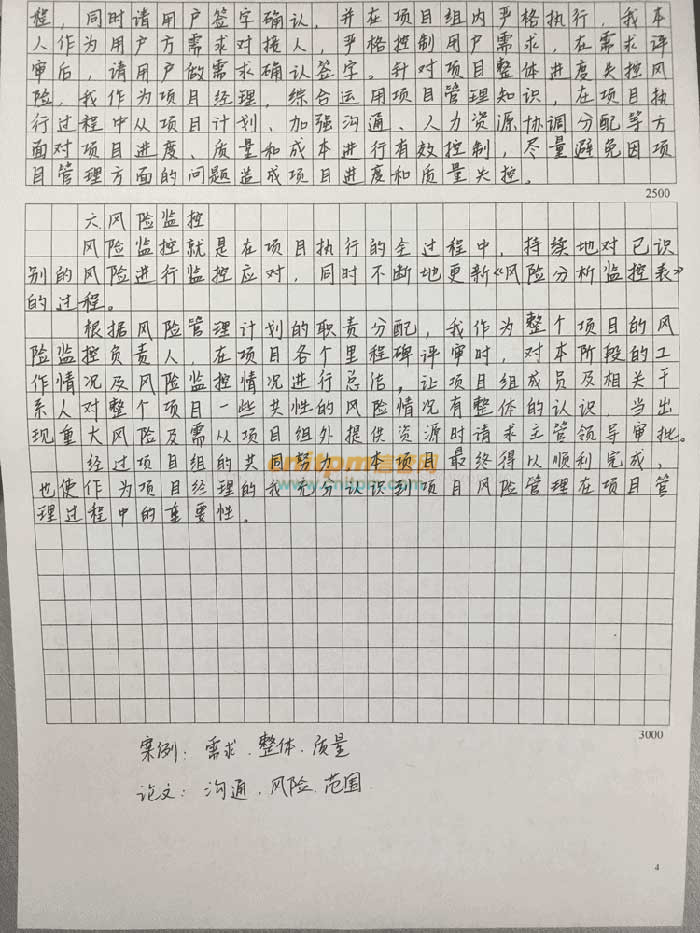 程，同时请用户签字确认，并在项目组内严格执行，我本
人作为用户方需求对接人，严格控制用户需求，在需求评
审后，请用户做需求确认签字。针对项目整体进度失控风
险，我作为项目经理，综合运用项目管理知识，在项目执
行过程中从项目计划、加强沟通、人力资源协调分配等方
面对项目进度、质量和成本进行有效控制，尽量避免因项
目管理方面的问题造成项目进度和质量失控。
2500
六、风险监控
风险监控就是在项目执行的全过程中，持续地对已识
别的风险进行监控应对，同时不断地更新《风险分析监控表》
的过程。
根据风险管理计划的职责分配，我作为整个项目的风
险监控负责人，在项目各个里程碑评审时，对本阶段的工
作情况及风险监控情况进行总结，让项目组成员及相关干
系人对整个项目一些共性的风险情况有整体的认识，当出
现重大风险及需从项目组外提供资源时请求主管领导审批。
经过项目组的共同努力，本项目最终得以顺利完成，
也使作为项目经理的我充分认识到项目风险管理在项目管
理过程中的重要性。
cnitpm
www.cnitpm.com
3000
案例：需求、整体、质量
论文：沟通、风险、范围
4